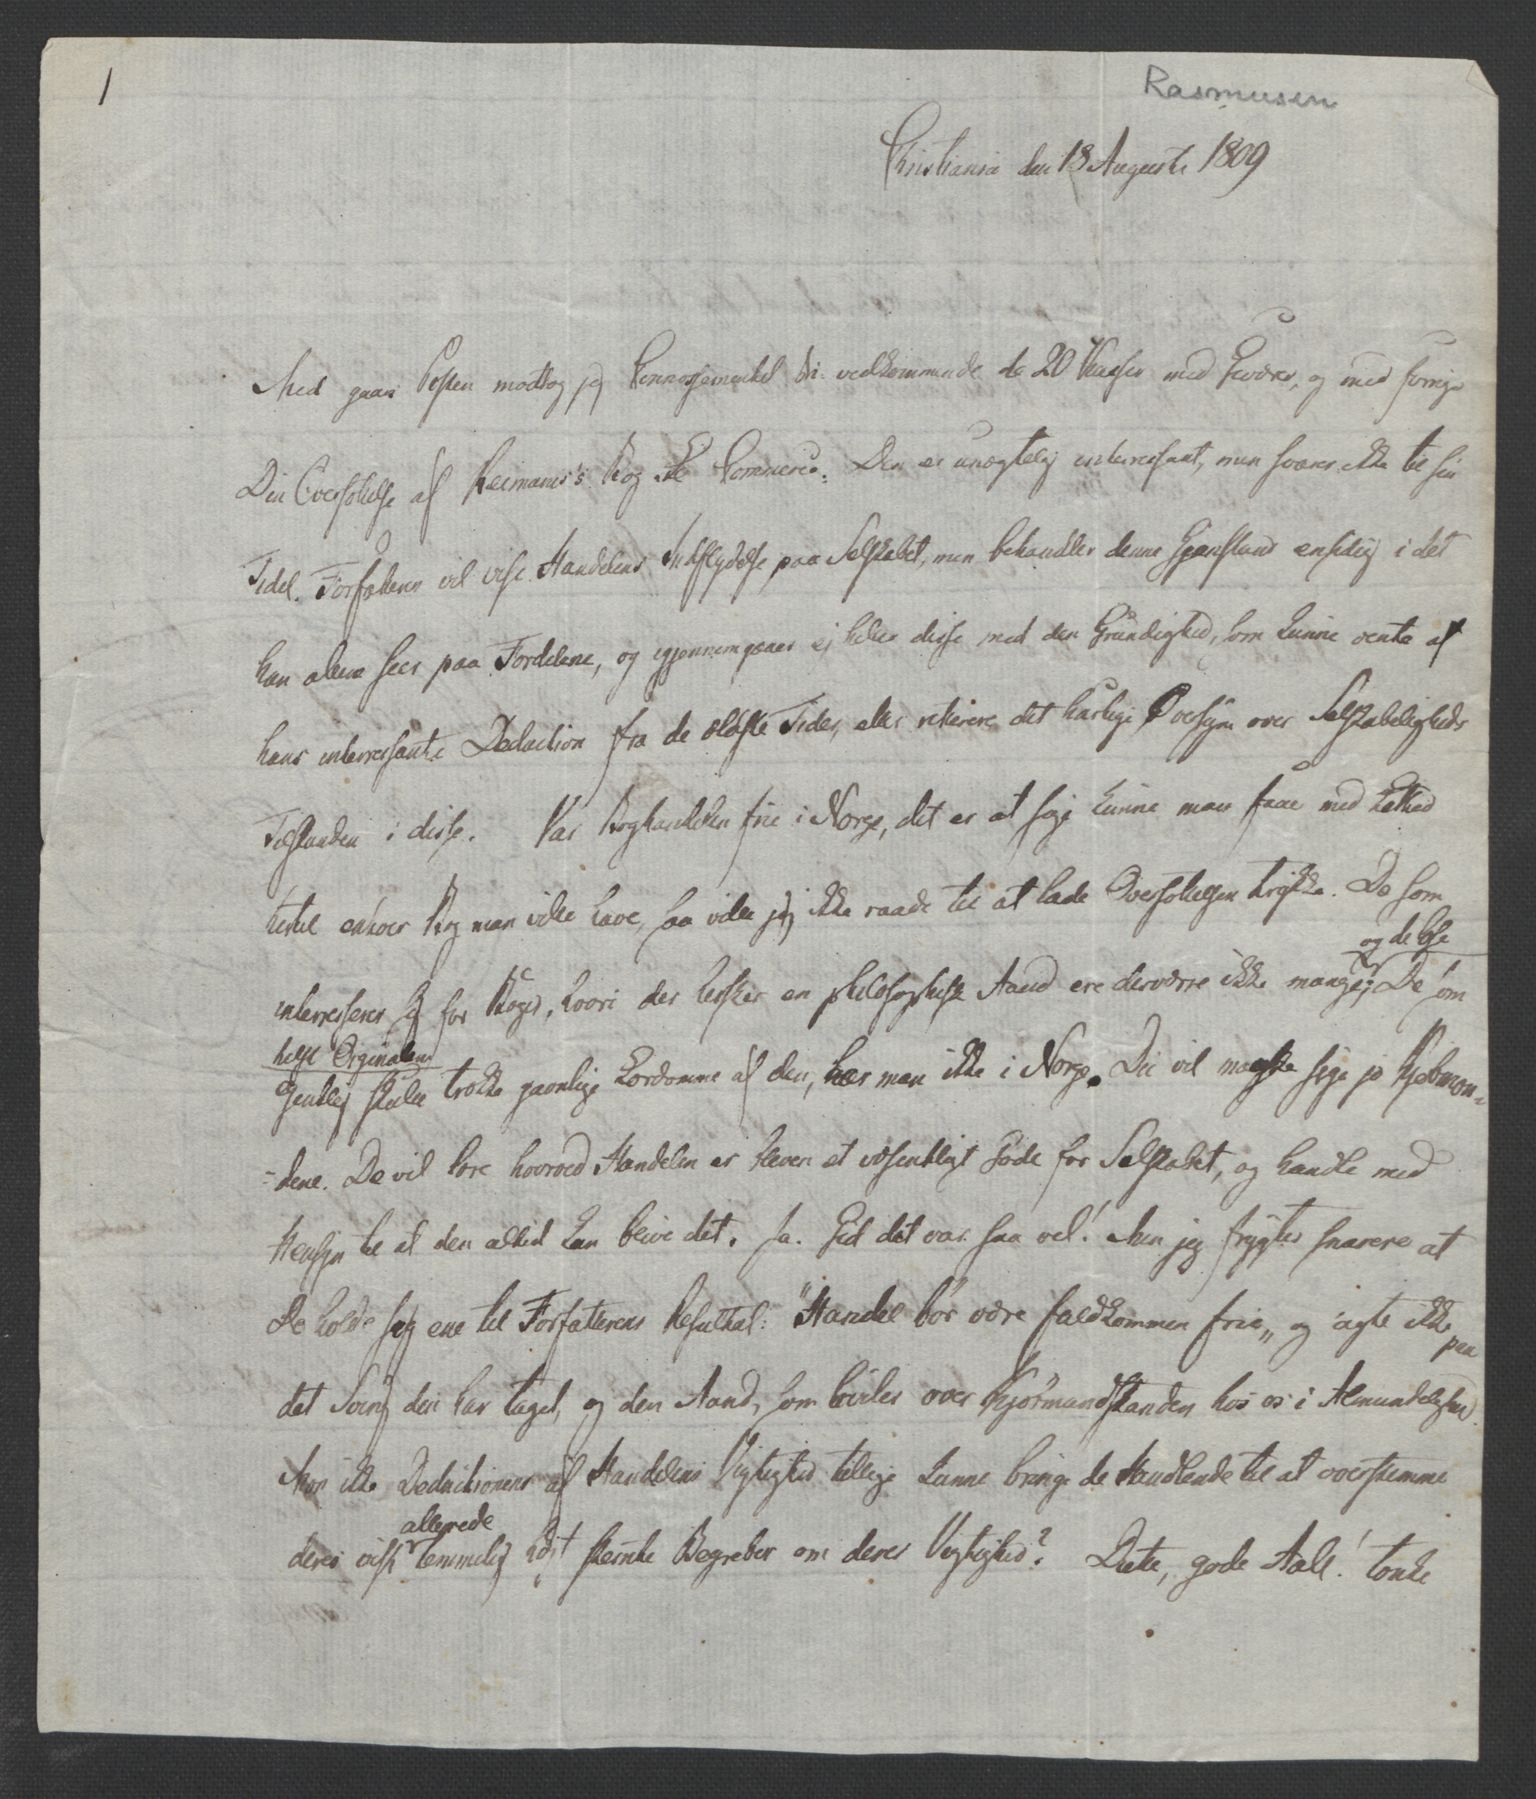 1
Rasmusen
Christiania den 18 Augusti 1809
Med gaars Posten modtog jeg Connossementet vedkommende de 20 Kasser med Gevær, og med forrige
Din Oversættelse af Reimarus's Bog Le Commerce. Den er unægtelig interressant, men svarer ikke til sin
Titel. Forfatteren vil vise Handelens Indflydelse paa Selskabet, men behandler denne Gjenstand ensidig i det
han allene seer paa Fordelene, og igjennemgaaer ej heller disse med den Grundighed, som kunne vente af
hans interressante Deduction fra de ældste Tider, eller rettere det hastige Oversyn over Selskabeligheds
Tilstanden i disse. Var Boghandelen frie i Norge, det er at sige kunne man faae med Lethed
hertil enhver Bog man vilde have, saa vilde jeg ikke raade til at lade Oversættelsen trykke. De som
og de læse
interresserer sig for Bøger, hvori der hersker en philosophisk Aand ere derværre ikke mange; De som
helst Originalen
egentlig skulle trække gavnlige Lærdomme af den, har man ikke i Norge. Du vil maaske sige jo Kjøbmæn-
-dene. De vil lære hvorved Handelen er bleven et væsentligt Gode for Selskabet, og handle med
Hensyn til at den altid kan blive det. Ja. Gid det var saa vel! Men jeg frygter snarere at
De holde sig ene til Forfatterens Resultat: "Handel bør være fuldkommen frie„ og agte ikke paa
det Sving den har taget, og den Aand, som hviler over Kjøbmandstanden hos os i Almindelighed.
Mon ikke Deductionen af Handelens Vigtighed tillige kunne bringe de Handlende til at overstemme
allerede
deres vist temmelig højt stemte Begreber om deres Vigtighed? Dette, gode Aall! tænke